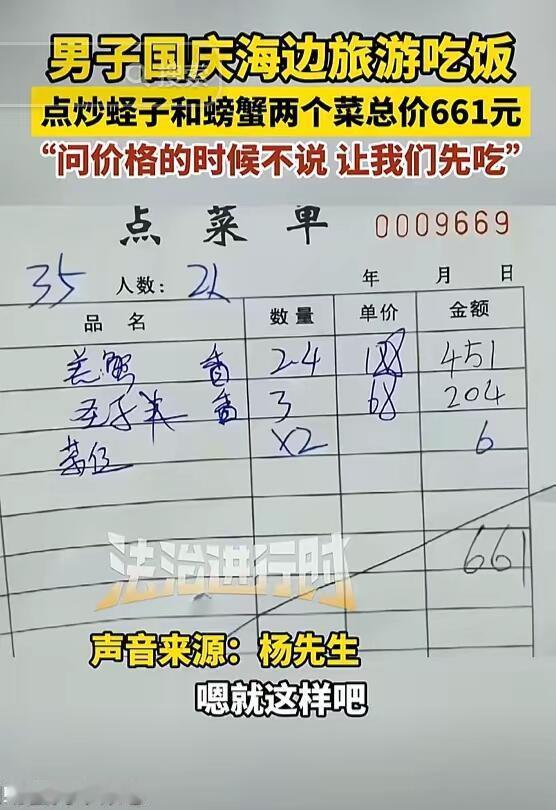 搜索
男子国庆海边旅游吃饭
点炒蛏子和螃蟹两个菜总价661元
“问价格的时候不说 让我们先吃”
点菜单 0009669
35 人数: 2人 年 月 日
品名 数量 单价 金额
羔蟹 2.4 188 451
3 68 204
茶位 x2 6
661
法治进行时
声音来源：杨先生
嗯就这样吧